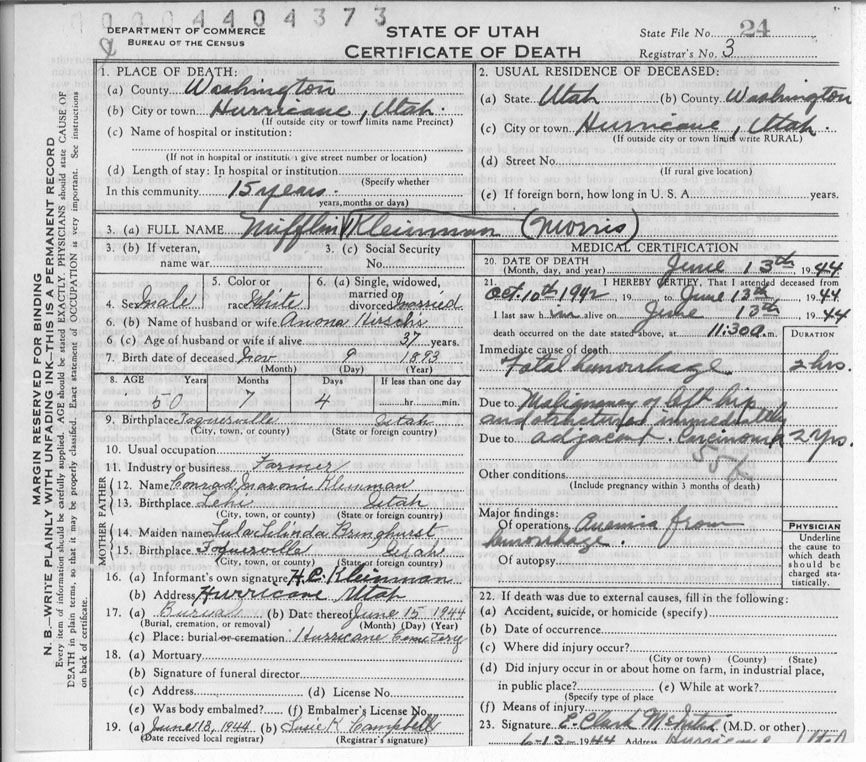 0004404373
DEPARTMENT OF COMMERCE
BUREAU OF THE CENSUS
STATE OF UTAH
CERTIFICATE OF DEATH
State File No. 24
Registrar's No. 3
MARGIN RESERVED FOR BINDING
N. B.—WRITE PLAINLY WITH UNFADING INK—THIS IS A PERMANENT RECORD
Every item of information should be carefully supplied. AGE should be stated EXACTLY. PHYSICIANS should state CAUSE OF
DEATH in plain terms, so that it may be properly classified. Exact statement of OCCUPATION is very important. See instructions
on back of certificate.
1. PLACE OF DEATH:
(a) County Washington
(b) City or town Hurricane, Utah.
(If outside city or town limits name Precinct)
(c) Name of hospital or institution:
(If not in hospital or instituti n give street number or location)
(d) Length of stay: In hospital or institution
(Specify whether
In this community 15 years.
years, months or days)
2. USUAL RESIDENCE OF DECEASED:
(a) State Utah (b) County Washington
(c) City or town Hurricane, Utah.
(If outside city or town limits write RURAL)
(d) Street No.
(If rural give location)
(e) If foreign born, how long in U. S. A. years.
3. (a) FULL NAME Mifflin Kleinman (Morris)
3. (b) If veteran, name war
3. (c) Social Security No.
4. Sex Male
5. Color or race White
6. (a) Single, widowed, married or divorced married
6. (b) Name of husband or wife Anona Hirschi
6. (c) Age of husband or wife if alive 37 years.
7. Birth date of deceased Nov 9 1893
(Month) (Day) (Year)
8. AGE Years Months Days If less than one day
50 7 4 hr. min.
9. Birthplace Toquerville Utah
(City, town, or county) (State or foreign country)
10. Usual occupation
11. Industry or business Farmer
FATHER
12. Name Conrad Mason Kleinman
13. Birthplace Lehi Utah
(City, town, or county) (State or foreign country)
MOTHER
14. Maiden name Lula Bringhurst
15. Birthplace Toquerville Utah
(City, town, or county) (State or foreign country)
16. (a) Informant's own signature H.C. Kleinman
(b) Address Hurricane Utah
17. (a) Burial (b) Date thereof June 15 1944
(Burial, cremation, or removal) (Month) (Day) (Year)
(c) Place: burial or cremation Hurricane Cemetery
18. (a) Mortuary
(b) Signature of funeral director
(c) Address (d) License No.
(e) Was body embalmed? (f) Embalmer's License No.
19. (a) June 13, 1944 (b) Susie K Campbell
(Date received local registrar) (Registrar's signature)
MEDICAL CERTIFICATION
20. DATE OF DEATH
(Month, day, and year) June 13th 1944
21. I HEREBY CERTIFY, That I attended deceased from
Oct. 10th 1942, 19 to June 13th, 1944
I last saw him alive on June 13th 1944
death occurred on the date stated above, at 11:30 a.m.
DURATION
Immediate cause of death
Total hemorrhage 2 hrs.
Due to Malignancy of left hip
and structures immediately
Due to adjacent. Carcinoma 2 yrs.
55
Other conditions
(Include pregnancy within 3 months of death)
Major findings:
Of operations Anemia from
hemorrhage.
Of autopsy
PHYSICIAN
Underline
the cause to
which death
should be
charged sta-
tistically.
22. If death was due to external causes, fill in the following:
(a) Accident, suicide, or homicide (specify)
(b) Date of occurrence
(c) Where did injury occur?
(City or town) (County) (State)
(d) Did injury occur in or about home on farm, in industrial place,
in public place? (e) While at work?
(Specify type of place
(f) Means of injury
23. Signature E. Clark McIntire (M.D. or other)
6-13-1944 Address Hurricane Utah